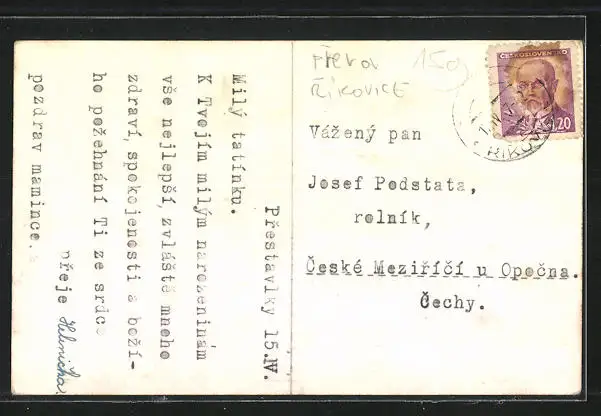 Přestavlky 15.IV.
Milý tatínku.
K Tvojím milým narozeninám
vše nejlepší, zvláště mnoho
zdraví, spokojenosti a boží-
ho požehnání Ti ze srdce
přeje Helnička
pozdrav mamince.
Přerov 150
ŘÍKOVICE
ČESKOSLOVENSKO
1,20
ŘÍKOV
Vážený pan
Josef Podstata,
rolník,
České Meziříčí u Opočna.
Čechy.